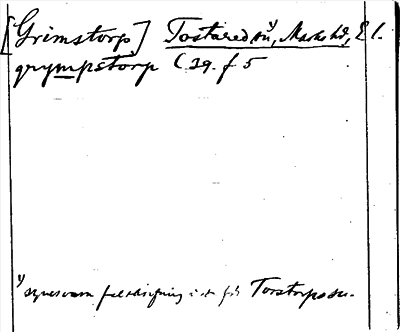 [Grimstorp] Tostared sn, Marks hd, Äl.
grympstorp C 29. f 5
1) synes vara felskrifning i st för Torstorps sn.